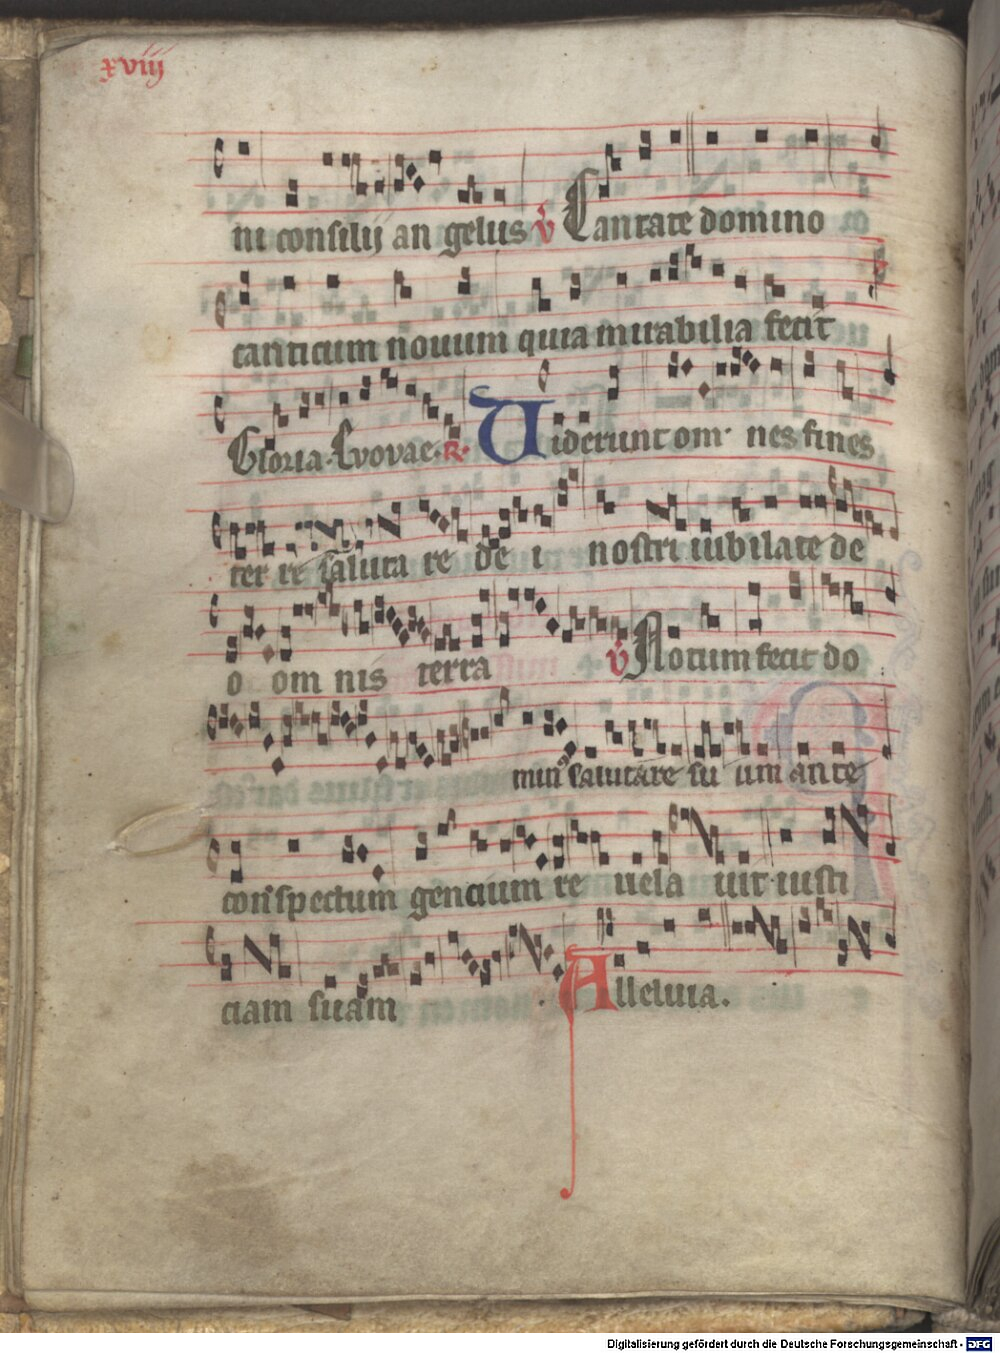 xviij
ni consilij an gelus v Cantate domino
canticum nouum quia mirabilia fecit
Gloria. Euouae. R. Uiderunt om nes fines
ter re saluta re de i nostri iubilate de
o om nis terra v Notum fecit do
min9 salutare su um an te
conspectum gencium re uela uit iusti
ciam suam . Alleluia.
Digitalisierung gefördert durch die Deutsche Forschungsgemeinschaft - DFG